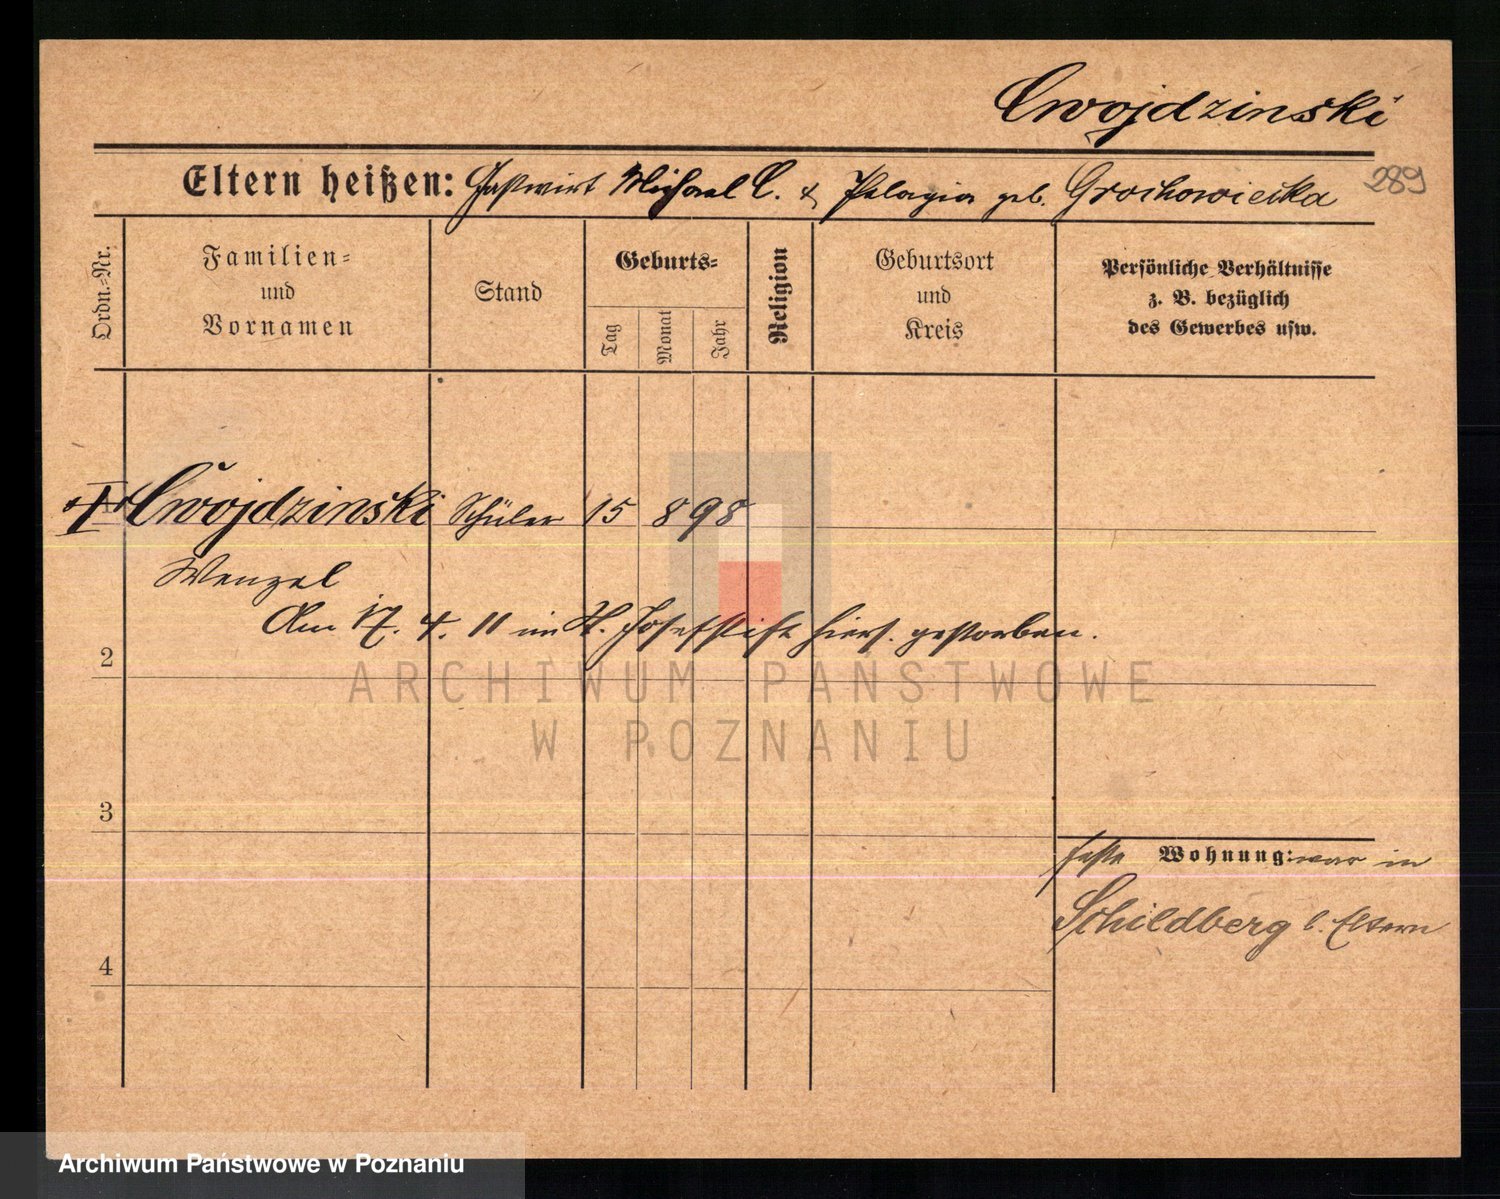 Cwojdzinski
Eltern heißen: Gastwirt Michael C. & Pelagia geb. Grochowiecka
289
Ordn.-Nr.
Familien-
und
Vornamen
Stand
Geburts-
Tag
Monat
Jahr
Religion
Geburtsort
und
Kreis
Persönliche Verhältnisse
z. B. bezüglich
des Gewerbes usw.
Cwojdzinski Schüler 15 8 98
Wenzel
Am 17. 4. 11 im St. Josefstift hiers. gestorben.
2
ARCHIWUM PAŃSTWOWE
W POZNANIU
3
feste Wohnung: war in
Schildberg b. Eltern
4
Archiwum Państwowe w Poznaniu